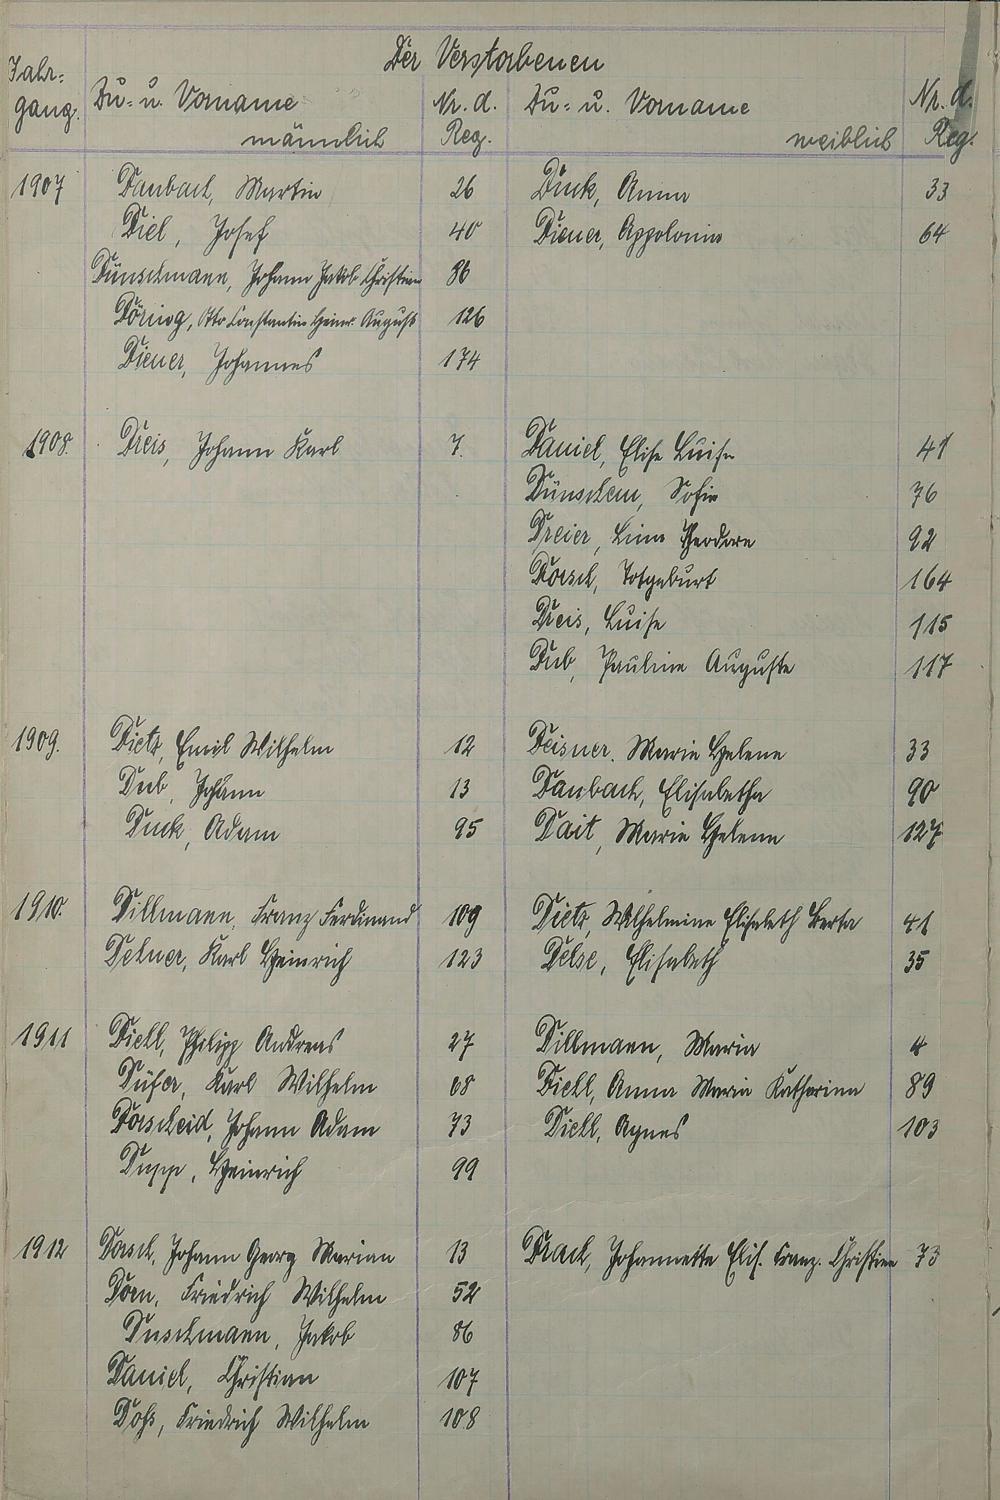 Der Verstorbenen
Jahr-
gang. Zu- u. Vorname männlich Nr. d. Reg. Zu- u. Vorname weiblich Nr. d. Reg.
1907 Daubach, Martin 26 Duck, Anna 33
Diel, Josef 40 Diener, Appolonia 64
Dünschmann, Johann Jakob Christian 86
Döring, Otto Constantin Heinr. August 126
Diener, Johannes 174
1908. Dreis, Johann Karl 7. Daniel, Elise Luise 41
Dünschem, Sofie 76
Dreier, Lina Theodore 92
Dorsch, Totgeburt 164
Dreis, Luise 115
Dub, Pauline Auguste 117
1909. Dietz, Emil Wilhelm 12 Deisner. Maria Helene 33
Dub, Johann 13 Daubach, Elisabetha 90
Duck, Adam 95 Dait, Maria Helena 127
1910. Dillmann, Franz Ferdinand 109 Dietz, Wilhelmine Elisabeth Berta 41
Karl Heinrich 123 Delse, Elisabeth 35
1911 Diehl, Philipp Andreas 27 Dillmann, Maria 4
Düfer, Karl Wilhelm 68 Diehl, Anna Maria Katharina 89
Dorscheid, Johann Adam 73 Diehl, Agnes 103
Dupp, Heinrich 99
1912 Dorsch, Johann Georg Marian 13 Drach, Johannetta Elis. Franz. Christina 73
Dorn, Friedrich Wilhelm 52
Duschmann, Jakob 86
Daniel, Christian 107
Dohs, Friedrich Wilhelm 108